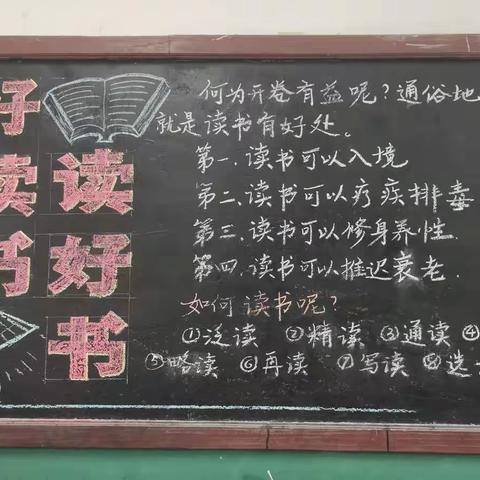 好读书
读好书
何为开卷有益呢？通俗地
就是读书有好处。
第一.读书可以入境
第二.读书可以疗疾排毒
第三.读书可以修身养性.
第四.读书可以推迟衰老.
如何读书呢？
①泛读 ②精读 ③通读 ④
⑤略读 ⑥再读 ⑦写读 ⑧选